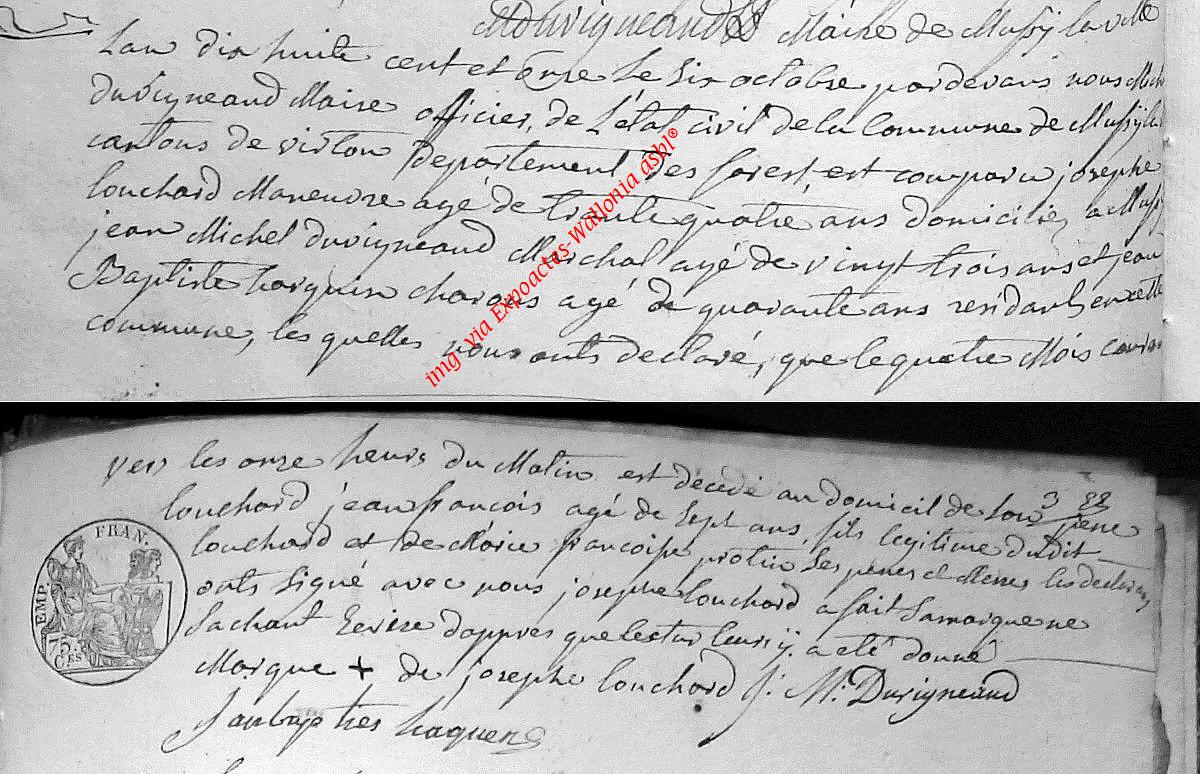 MDuvigneaud Maire de Mussy la ville
Lan dix huite cent et onze Le Six octobre pardevans nous Mich
Duvigneaud Maire officier, de L'état civil de la Commune de Mussy la
cantons de virton Departement Des forest, est comparu josephe
Louchard Maneuvre agé de trante quatre ans domicilié a Mussy
jean Michel Duvigneaud Marchal agé de vingt trois ans et jean
Baptiste charons agé de quarante ans residants en cette
commune, les quelles nous onts declaré, que le quatre Mois couran
img via Expoactes-Wallonia asbl®
3 88
vers les onze heurs du Matin est décédé au domicil de Son pere
Louchard jean francois agé de Sept ans, fils legitime dudit
Louchard et de Marie francoise protin Ses peres et Meres les declarans
onts Signé avec nous josephe Louchard a fait Sa marque ne
Sachant Ecrire dappres que lectur leur y a eté donné
Marque + de josephe Louchard J: M: Duvigneaud
Janbapties haquen
EMP. FRAN.
75 CES